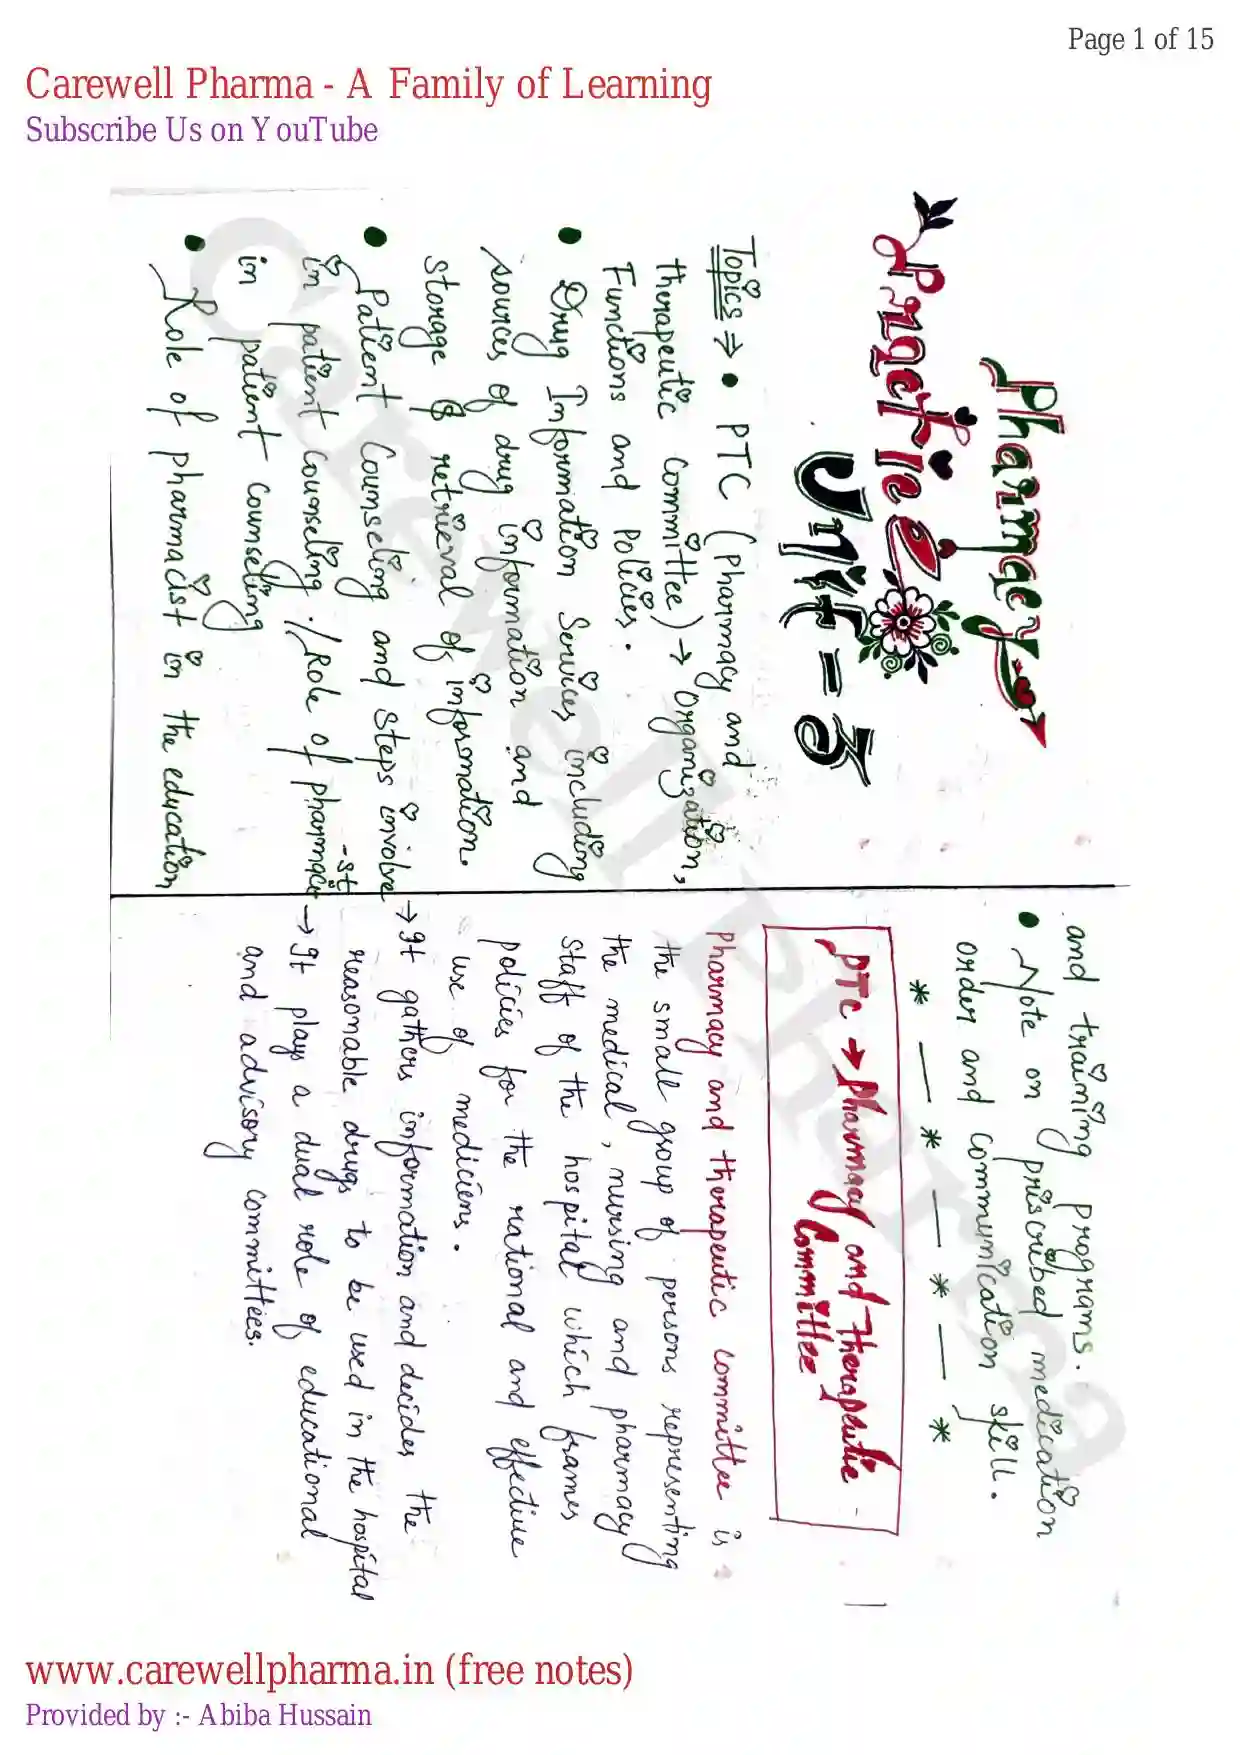 Page 1 of 15
Carewell Pharma - A Family of Learning
Subscribe Us on YouTube
Pharmacy
Practice
Unit = 3
Topics ⇒ • PTC (Pharmacy and
therapeutic committee) → Organization,
Functions and Policies.
• Drug Information Services including
sources of drug information and
storage & retrieval of information.
• Patient Counseling and Steps involve
in patient counseling. / Role of pharmaci
-st
in patient counseling
• Role of pharmacist in the education
and training programs.
• Note on priscribed medication
order and communication skill.
* — * — * — *
PTC → Pharmacy and Therapeutic
Committee
Pharmacy and therapeutic committee is
the small group of persons representing
the medical, nursing and pharmacy
staff of the hospital which frames
policies for the rational and effective
use of mediciens.
→ It gathers information and decides the
reasonable drugs to be used in the hospital
→ It plays a dual role of educational
and advisory committees.
Carewell Pharma
www.carewellpharma.in (free notes)
Provided by :- Abiba Hussain